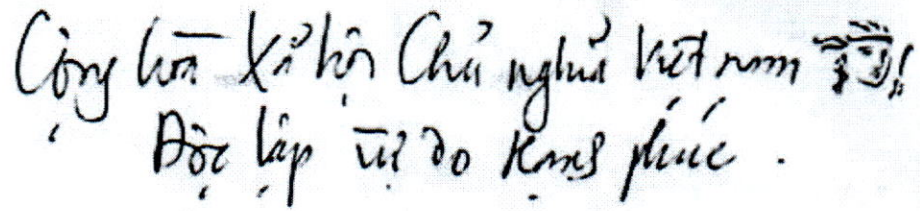 Cộng hòa Xã hội Chủ nghĩa Việt nam
Độc lập tự do hạnh phúc.